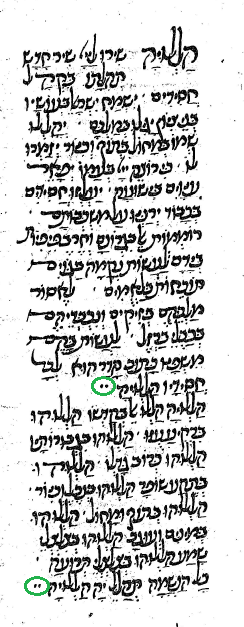 הללויה שירו ליי שיר חדש
תהלתו בקהל
חסידים · ישמח ישראל בעושיו
בני ציון יגילו במלכם · יהללו
שמו במחול בתוף וכנור יזמרו
לו · כי רוצה יי בעמו יפאר
ענוים בישועה · יעלזו חסידים
בכבוד ירננו על משכבותם ·
רוממות אל בגרונם וחרב פיפיות
בידם לעשות נקמה בגוים
תוכחות בלאומים · לאסור
מלכיהם בזיקים ונכבדיהם
בכבלי ברזל · לעשות בהם
משפט כתוב הדר הוא לכל
חסידיו הללויה ··
הללויה הללו אל בקדשו הללוהו
ברקיע עוזו · הללוהו בגבורותיו
הללוהו כרוב גדלו · הללוהו
בתקע שופר הללוהו בנבל וכנור ·
הללוהו בתוף ומחול · הללוהו
במנים ועוגב · הללוהו בצלצלי
שמע הללוהו בצלצלי תרועה ·
כל הנשמה תהלל יה הללויה ··